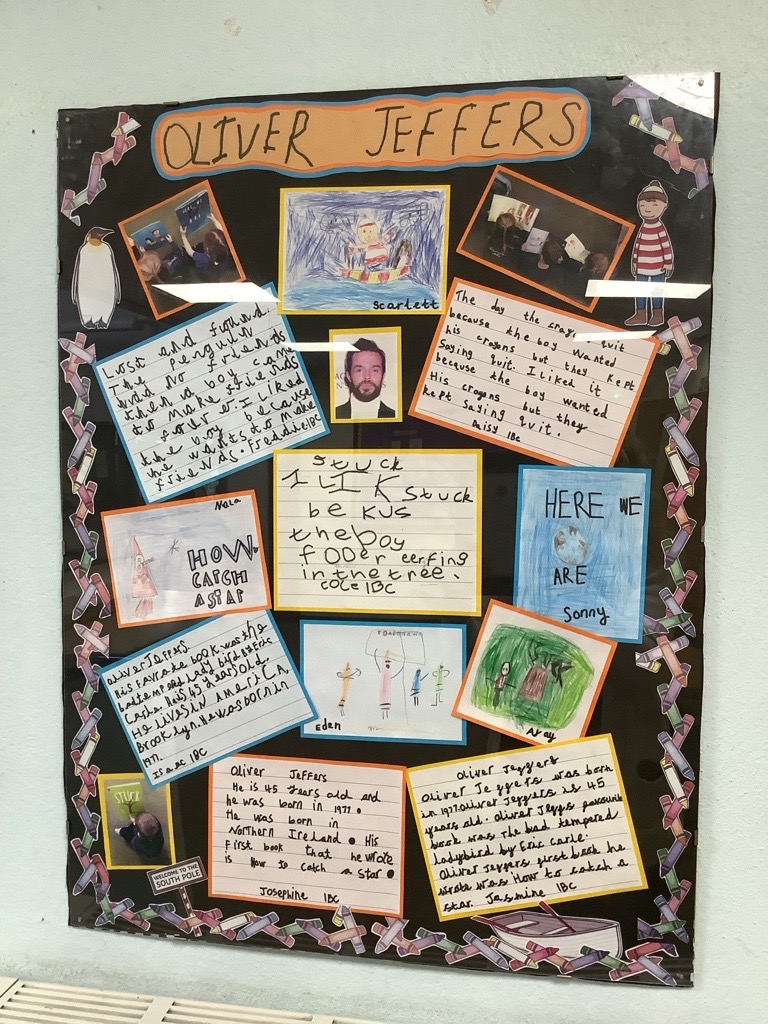 OLIVER JEFFERS
Scarlett
Lost and found
The penguin
had no friends
then a boy came
to make friends
for eve. I liked
the boy because
he wants to make
friends. Freddie 1BC
The day the crayons quit
because the boy wanted
his crayons but they kept
Saying quit. I liked it
because the boy wanted
His crayons but they
kept saying quit.
Daisy 1BC
Stuck
I LIK Stuck
be kus
the boy
FODer eerfing
in the tree.
cole 1BC
Nala
HOW
CATCH
A STAR
HERE WE
ARE
Sonny
oliver Jeffers
His favrate book was the
bad tempered Lady bird by Eric
Carle. He is 45 years old.
He lives in America
Brooklyn. He was born in
1977.
1BC
Eden
Array
STUCK
WELCOME TO THE
SOUTH POLE
Oliver Jeffers
He is 45 years old and
he was born in 1977.
He was born in
Northern Ireland. His
First book that he wrote
is How to catch a star.
Josephine 1BC
Oliver Jeggers
Oliver Jeggers was born
in 1977. Oliver Jeggers is 45
years old. Oliver Jeggs favourite
book was The bad tempered
ladybird by Eric Carle.
Oliver Jeggers first book he
wrote was How to catch a
star. Jasmine 1BC